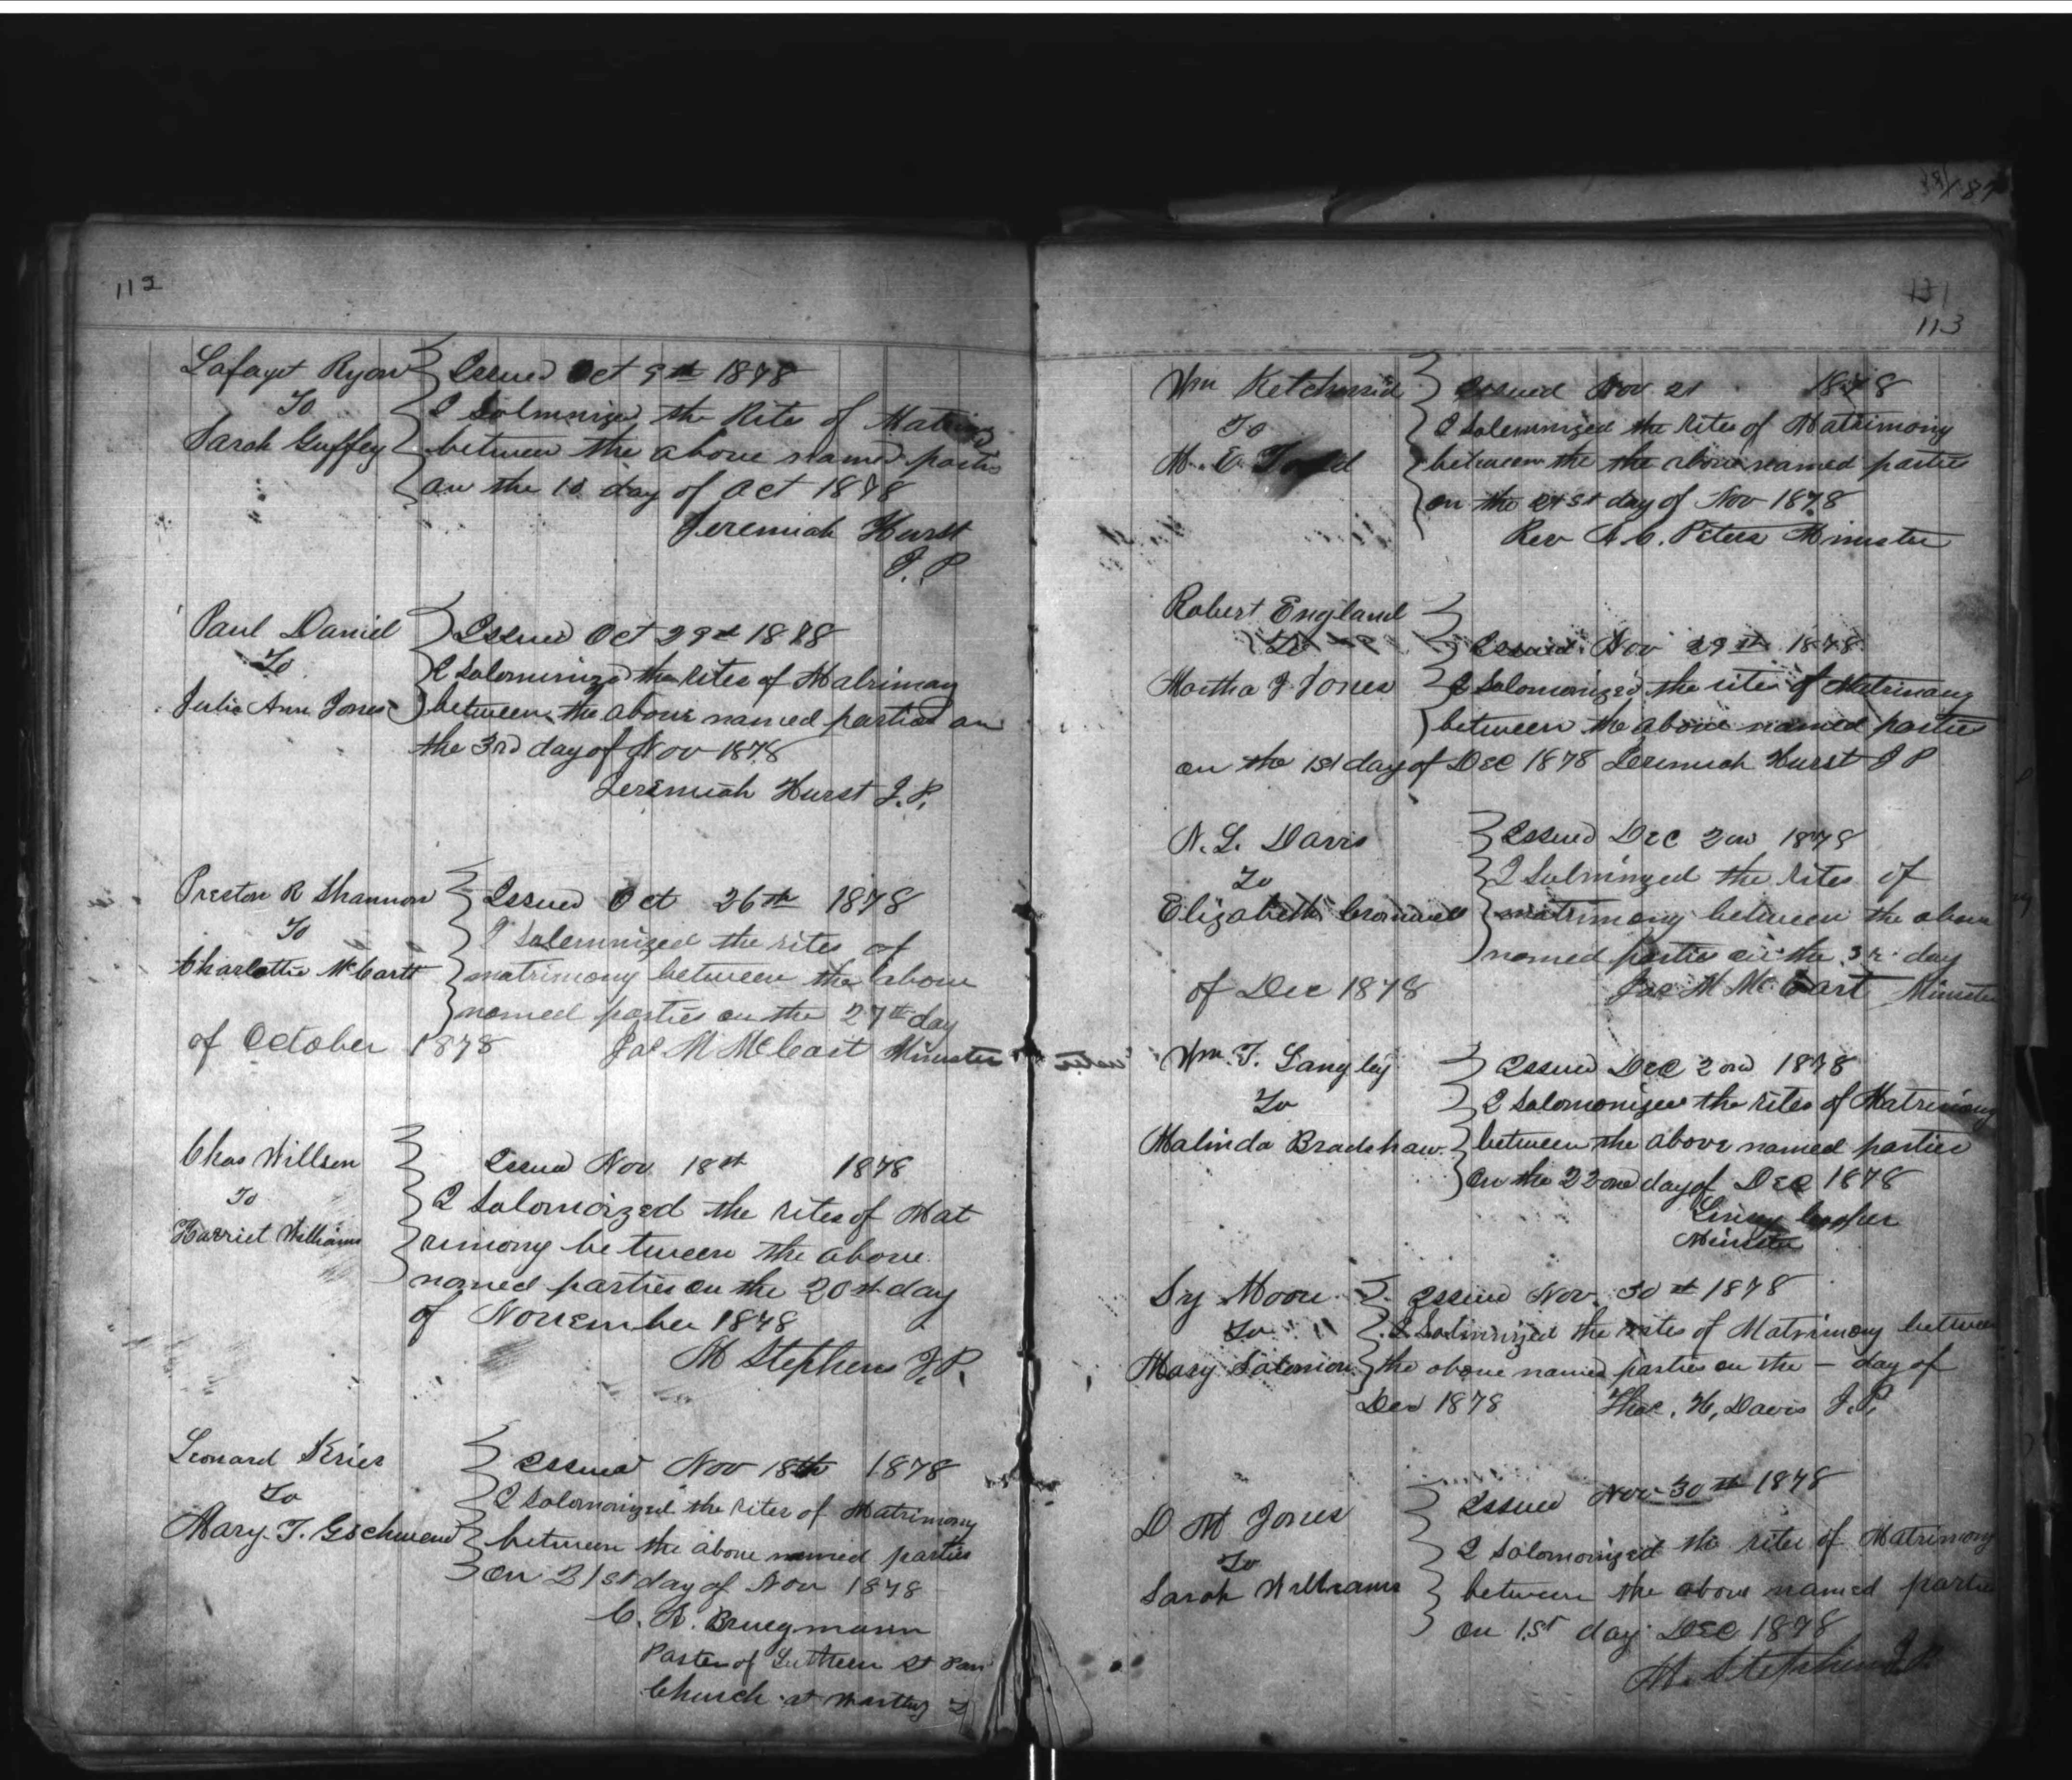 112
Lafayet Ryon Issued Oct 9th 1878
To I Solmnized the Rite of
Sarah Guffey between the above named parties
on the 10 day of Oct 1878
Jeremiah Hurst
J. P
Paul Daniel Issued Oct 29th 1878
To I Solominized the rites of Matrimony
Julie Ann Jones between the above named parties on
the 3rd day of Nov 1878
Jeremiah Hurst J. P.
Preston R Shannon Issued Oct 26th 1878
To I Solemnized the rites of
Charlottie McCartt matrimony between the above
named parties on the 27th day
of October 1878 Jas M McCart Minister
Chas Willson Issued Nov 18st 1878
To I Solomoized the rites of Mat
Harriet Williams rimony between the above
named parties on the 20st day
of November 1878
M Stephens J. P.
Leonard Kries Issued Nov 18th 1878
To I Solomonized the rites of Matrimony
Mary. T. between the above named parties
On 21st day of Nov 1878
C. A. Bruegmann
Paster of Luthern St
Church at
187
131
113
Wm Issued Nov 21 1878
To I Solemnized the rites of Matrimony
M. E. between the the above named parties
on the 21st day of Nov 1878
Rev A. C. Peters Minister
Robert England
To Issued Nov 29st 1878
Martha J Jones I Solomonized the rites of Matrimony
between the above named parties
on the 1st day of DEC 1878 Jeremiah Hurst J P
N. L. Davis Issued DEC 2nd 1878
To I Solminzed the rites of
Elizabeth matrimony between the above
named parties on the 3r day
of Dec 1878 Jas M McCart Minister
Wm. T. Langley Issued DEC 2ond 1878
To I Solomonized the rites of Matrimony
Malinda Bradshaw between the above named parties
On the 22ond day of DEC 1878
Cooper
Minister
Sy Moon Issued Nov. 30st 1878
To I Solminized the rites of Matrimony between
Mary Solomon the above named parties on the — day of
Dec 1878 Thos. H. Davis J. P.
D M Jones Issued Nov 30th 1878
To I Solomonized the rites of Matrimony
Sarah Williams between the above named parties
On 1st day DEC 1878
M. Stephens J. P.